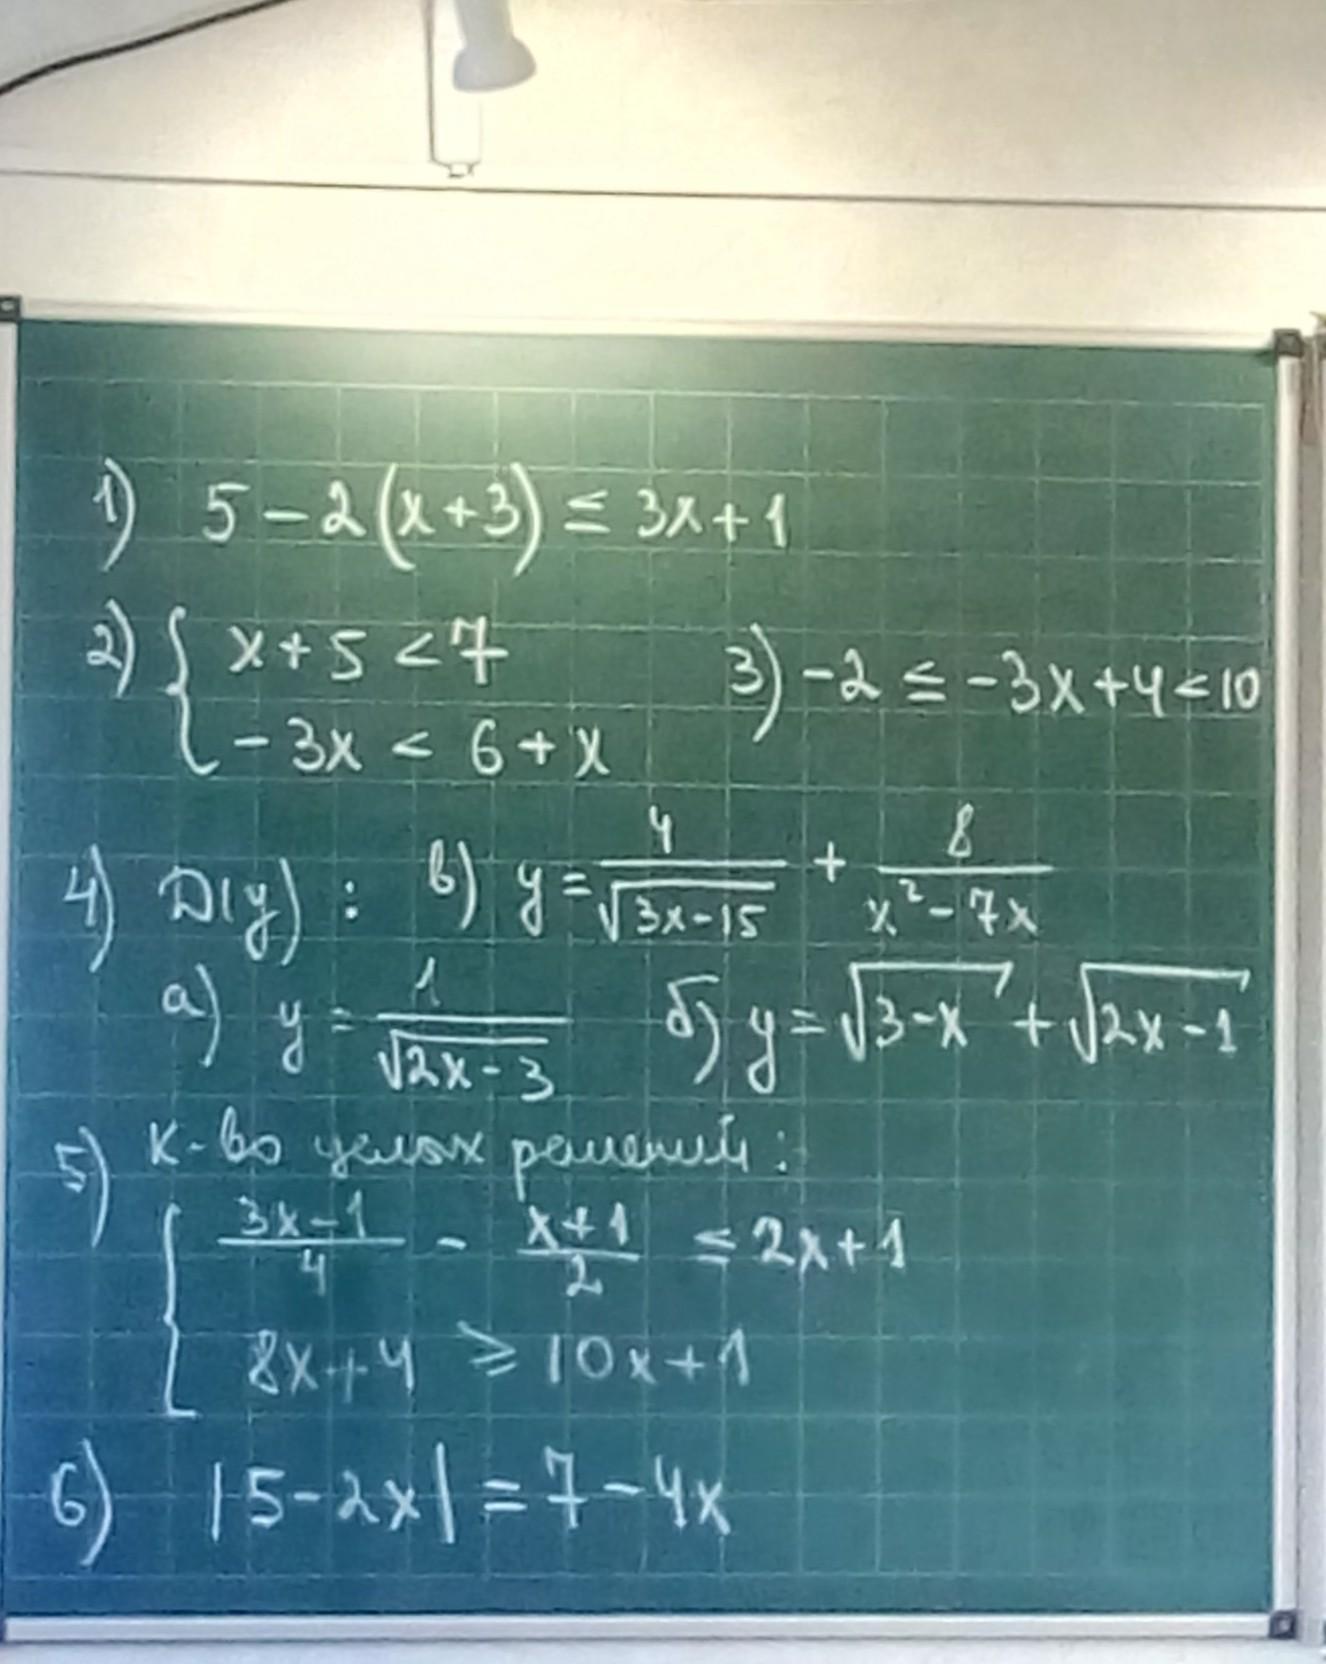 1) 5 - 2(x+3) ≤ 3x+1
2) { x+5 < 7
-3x < 6+x
3) -2 ≤ -3x+4 < 10
4) D(y) : в) y = 4/√(3x-15) + 8/(x²-7x)
а) y = 1/√(2x-3) б) y = √(3-x) + √(2x-1)
5) К-во целых решений:
{ (3x-1)/4 - (x+1)/2 ≤ 2x+1
8x+4 ⩾ 10x+1
6) |5-2x| = 7-4x